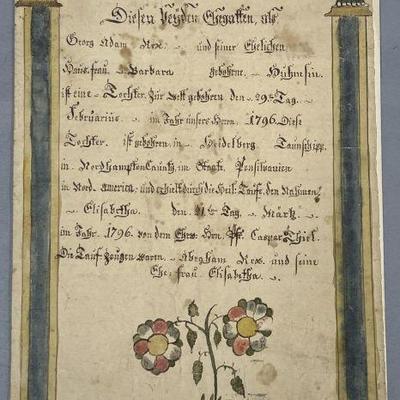 Diesen beyden Ehegatten, als
Georg Adam Rex. und seiner Ehelichen
Haus, frau Barbara gebohrne Hühmsin,
ist eine Tochter, Zur Welt gebohren den 29te Tag.
Februarius im Jahr unsers Herrn 1796. Diese
Tochter ist gebohren in Heidelberg Taunschipp,
in Nordhampton Caunty, im Staate Pensilvanien
in Nord America; und erhielt durch die Heil: Taufe, den Nahmen,
Elisabetha den 21te Tag März
im Jahr 1796. von dem Ehrw: Hrn. Pfr. Caspar Thiel.
Die Tauf Zeugen waren Abraham Rex und seine
Ehe-frau Elisabetha.